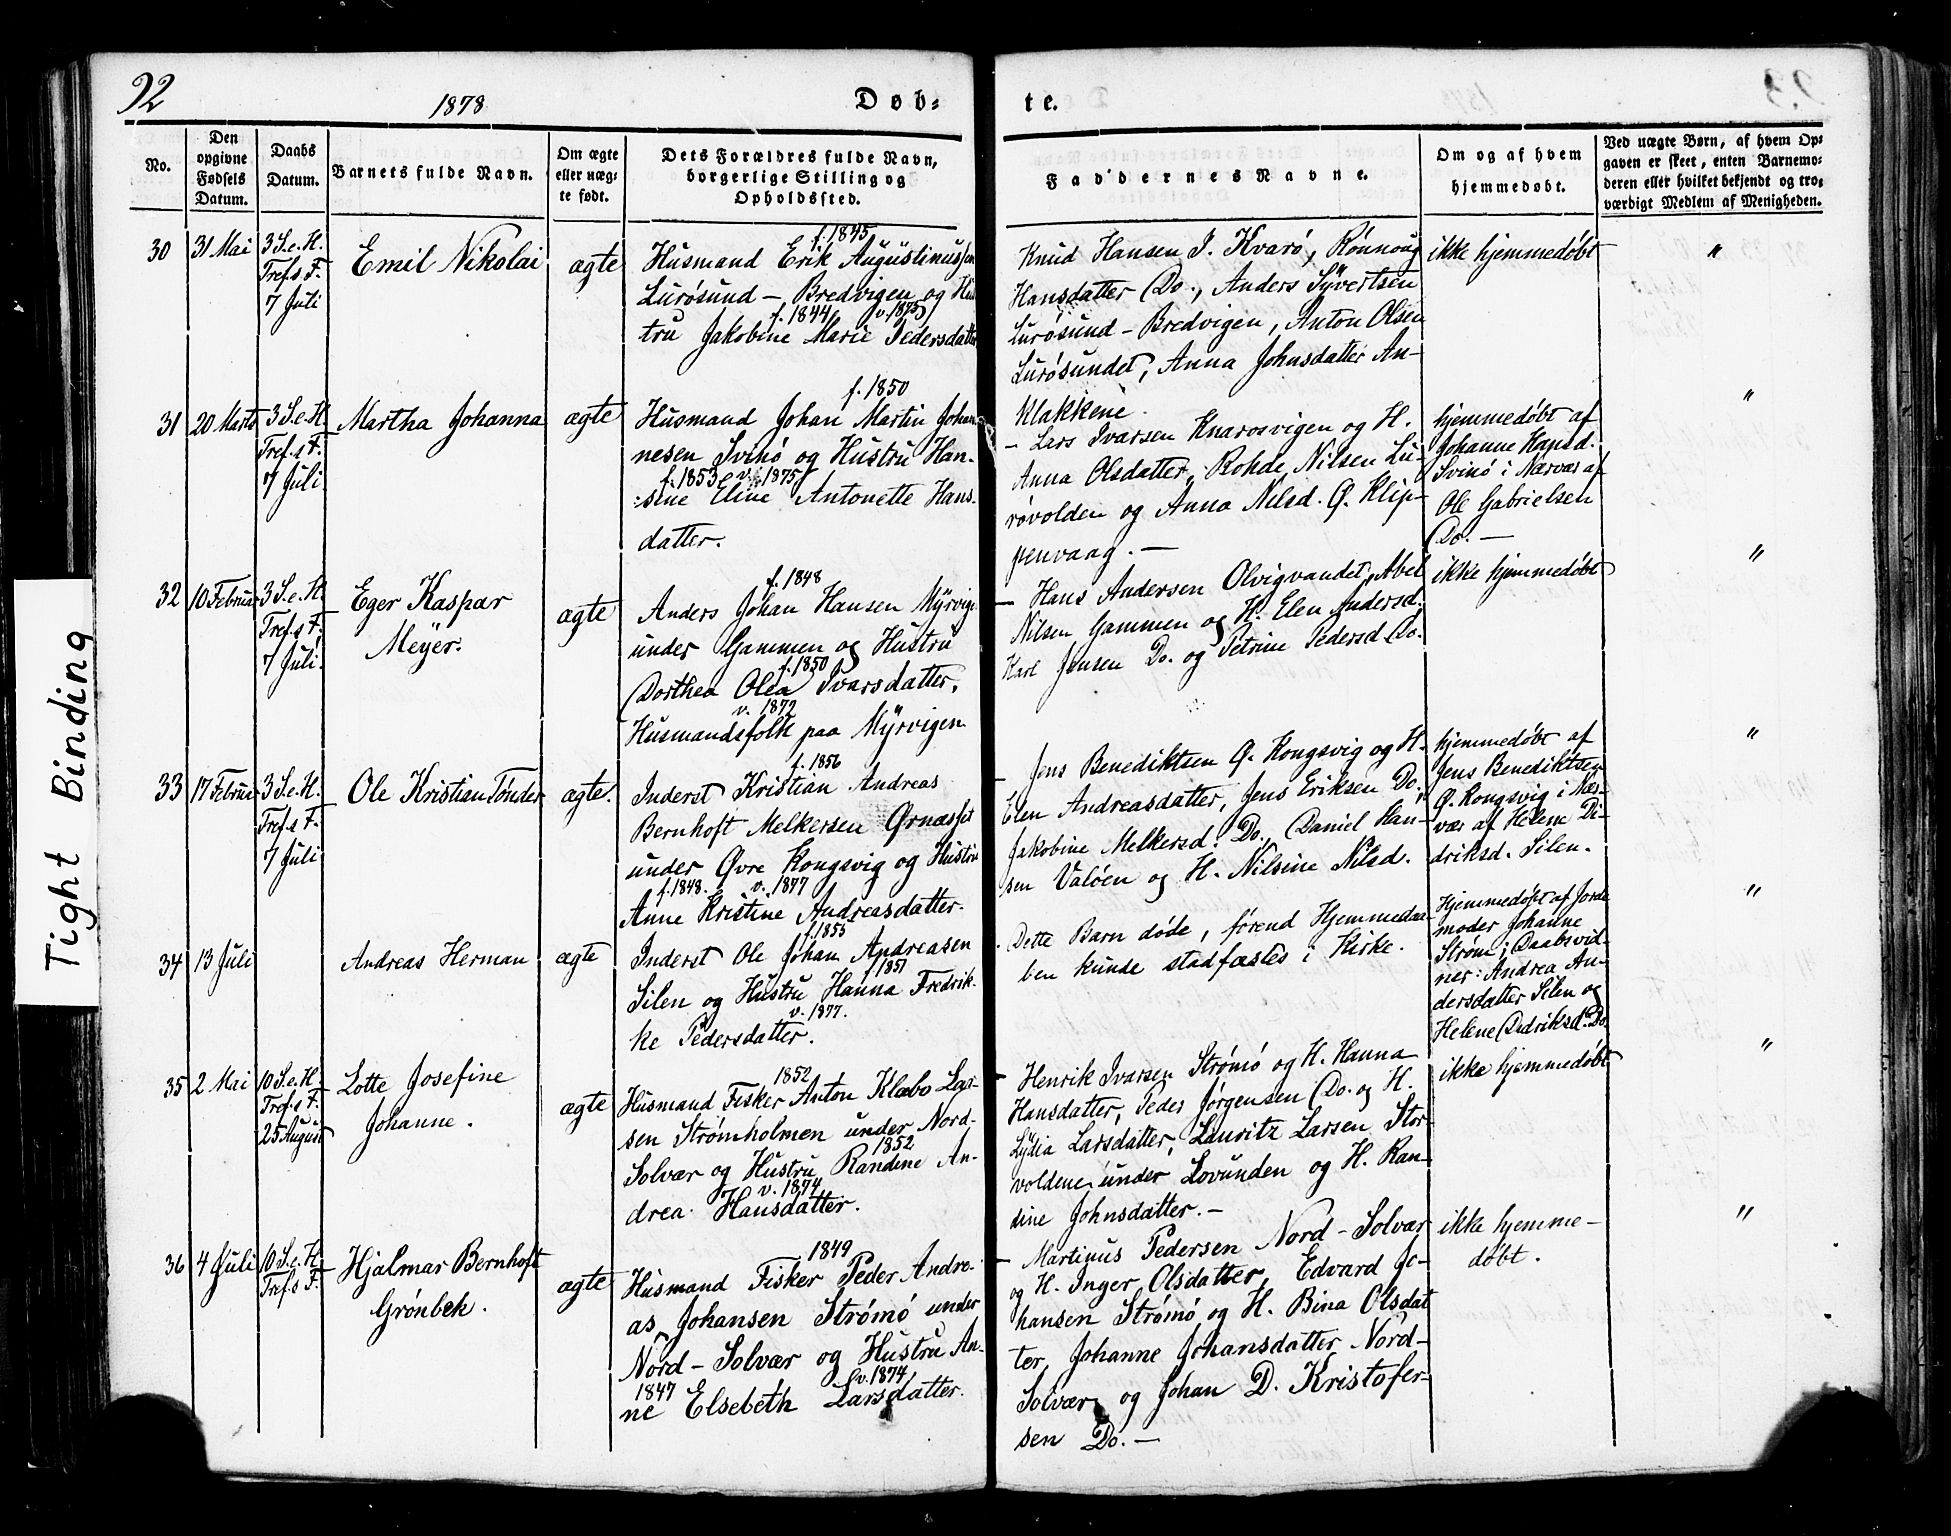 92
1878
Døb-
te.
No.
Den
opgivne
Fødsels
Datum.
Daabs
Datum.
Barnets fulde Navn.
Om ægte
eller uæg-
te født.
Dets Forældres fulde Navn,
borgerlige Stilling og
Opholdssted.
Faddernes Navne.
Om og af hvem
hjemmedøbt.
Ved uægte Børn, af hvem Op-
gaven er skeet, enten Barnemo-
deren eller hvilket bekjendt og tro-
værdigt Medlem af Menigheden.
30
31 Mai
3 S. e. H.
Tref.s F.
7 Juli
Emil Nikolai
ægte
f. 1845
Husmand Erik Augustinussen
Lurøsund - Bredvigen og Hus
f. 1844 v. 1875
tru Jakobine Marie Pedersdatter
Knud Hansen I. Kvarø, Rønnoug
Hansdatter Do., Anders Syvertsen
Lurøsund - Bredvigen, Anton Olsen
Lurøsundet, Anna Johnsdatter An-
klakkene.
ikke hjemmedøbt
"
31
20 Marts
3 S. e. H.
Tref.s F.
7 Juli
Martha Johanna
ægte
f. 1850
Husmand Johan Martin Johan
nesen Svinø og Hustru Han-
f. 1853 v. 1875
sine Eline Antonette Hans-
datter.
- Lars Ivarsen Knarosvigen og H.
Anna Olsdatter, Rohde Nilsen Lu-
røvolden og Anna Nilsd. Ø. Klip-
penvaag. -
hjemmedøbt af
Johanne Hansd.
Svinø i Nærvær af
Ole Gabrielsen
Do. -
"
32
10 Februar
3 S. e. H.
Tref.s F.
7 Juli.
Eger Kaspar
Meyer.
ægte
f. 1848
Anders Johan Hansen Myrvige
under Gammen og Hustru
f. 1850
Dorthea Olea Ivarsdatter,
v. 1872
Husmandsfolk paa Myrvigen
- Hans Andersen Olvigvandet, Abel
Nilsen Gammen og H. Elen Andersd.
Karl Jensen Do. og Petrine Pedersd Do.
ikke hjemmedøbt
"
33
17 Februar
3 S. e. H.
Tref.s F.
7 Juli
Ole Kristian Tønder
ægte.
f. 1856
Inderst Kristian Andreas
Bernhoft Melkersen Ørnæsset
under Øvre Kongsvig og Hustru
f. 1848. v. 1877
Anne Kristine Andreasdatter.
- Jens Benediktsen Ø. Kongsvig og H.
Elen Andreasdatter, Jens Eriksen Do.,
Jakobine Melkersd. Do., Daniel Han-
sen Valøen og H. Nilsine Nilsd.
hjemmedøbt af
Jens Benediktsen
Ø. Kongsvig i Nær-
vær af Helene Di-
driksd. Silen.
"
34
13 Juli
Andreas Herman
ægte
f. 1855
Inderst Ole Johan Andreasen
f 1851
Silen og Hustru Hanna Fredrik-
v. 1877.
ke Pedersdatter.
Dette Barn døde, førend Hjemmedaa-
ben kunde stadfæstes i Kirke.
Hjemmedøbt af Jorde
moder Johanne
Strøm; Daabsvid-
ner: Andrea An-
dersdatter Silen og
Helene Didriksd. Do.
"
35
2 Mai
10 S. e. H.
Tref.s F.
25 August
Lotte Josefine
Johanne.
ægte
1852
Husmand Fisker Anton Klæbo Lar-
sen Strømholmen under Nord-
1852
Solvær og Hustru Randine An-
v. 1874
drea Hansdatter.
- Henrik Ivarsen Strømø og H. Hanna
Hansdatter, Peder Jørgensen Do. og H.
Lydia Larsdatter, Lauritz Larsen Stor-
voldene under Lovunden og H. Ran-
dine Johnsdatter. -
ikke hjemmedøbt
"
36
4 Juli
10 S. e. H.
Tref.s F.
Hjalmar Bernhoft
Grønbek.
ægte
1849
Husmand Fisker Peder Andre-
as Johansen Strømø under
Nord-Solvær og Hustru An-
1847 v. 1874
ne Elsebeth Larsdatter.
- Martinus Pedersen Nord-Solvær
og H. Inger Olsdatter, Edvard Jo-
hansen Strømø og H. Bina Olsdat
ter, Johanne Johansdatter Nord-
Solvær og Johan D. Kristofer-
sen Do. -
ikke hjemme-
døbt.
"
Tight Binding